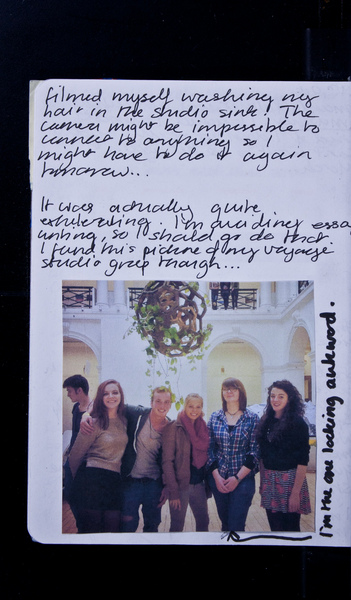 filmed myself washing my
hair in the studio sink. The
camera might be impossible to
connect to anything so I
might have to do it again
tomorrow...
It was actually quite
exhilerating. I'm avoiding essay
writing, so I should go do that.
I found this picture of my voyage
studio group though...
I'm the one looking awkward.